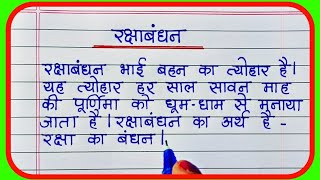 रक्षाबंधन
रक्षाबंधन भाई बहन का त्योहार है।
यह त्योहार हर साल सावन माह
की पूर्णिमा को धूम-धाम से मुनाया
जाता है। रक्षाबंधन का अर्थ है -
रक्षा का बंधन।